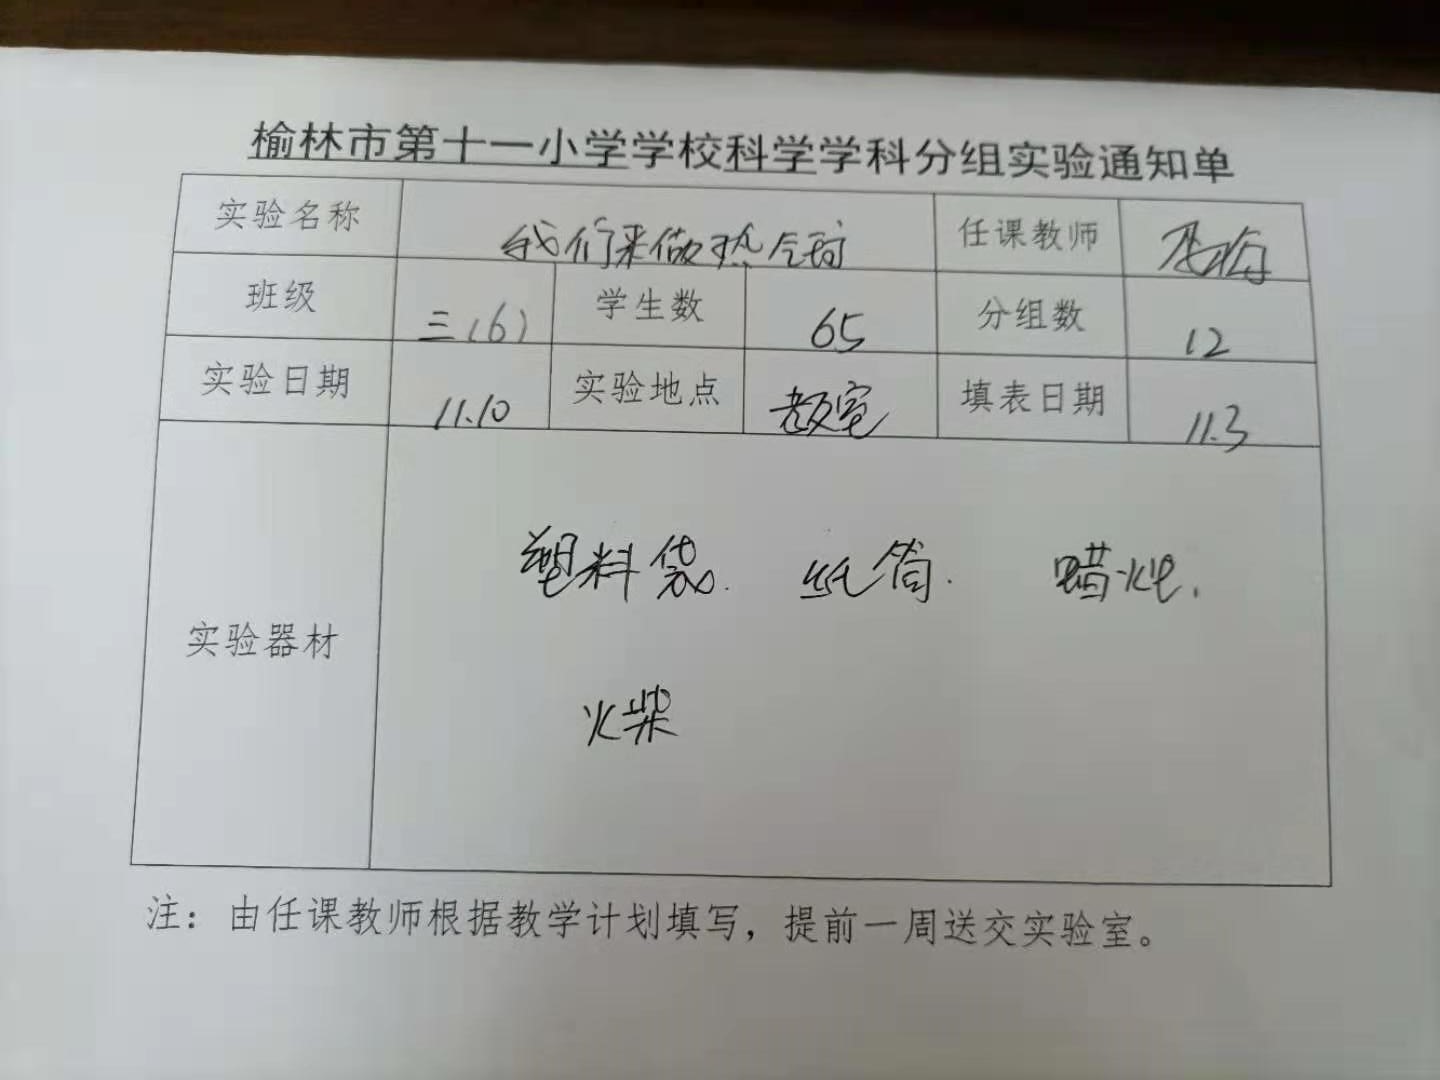 榆林市第十一小学学校科学学科分组实验通知单
实验名称 我们来做热气球 任课教师
班级 三(6) 学生数 65 分组数 12
实验日期 11.10 实验地点 教室 填表日期 11.3
塑料袋. 纸筒. 蜡烛.
实验器材
火柴
注：由任课教师根据教学计划填写，提前一周送交实验室。